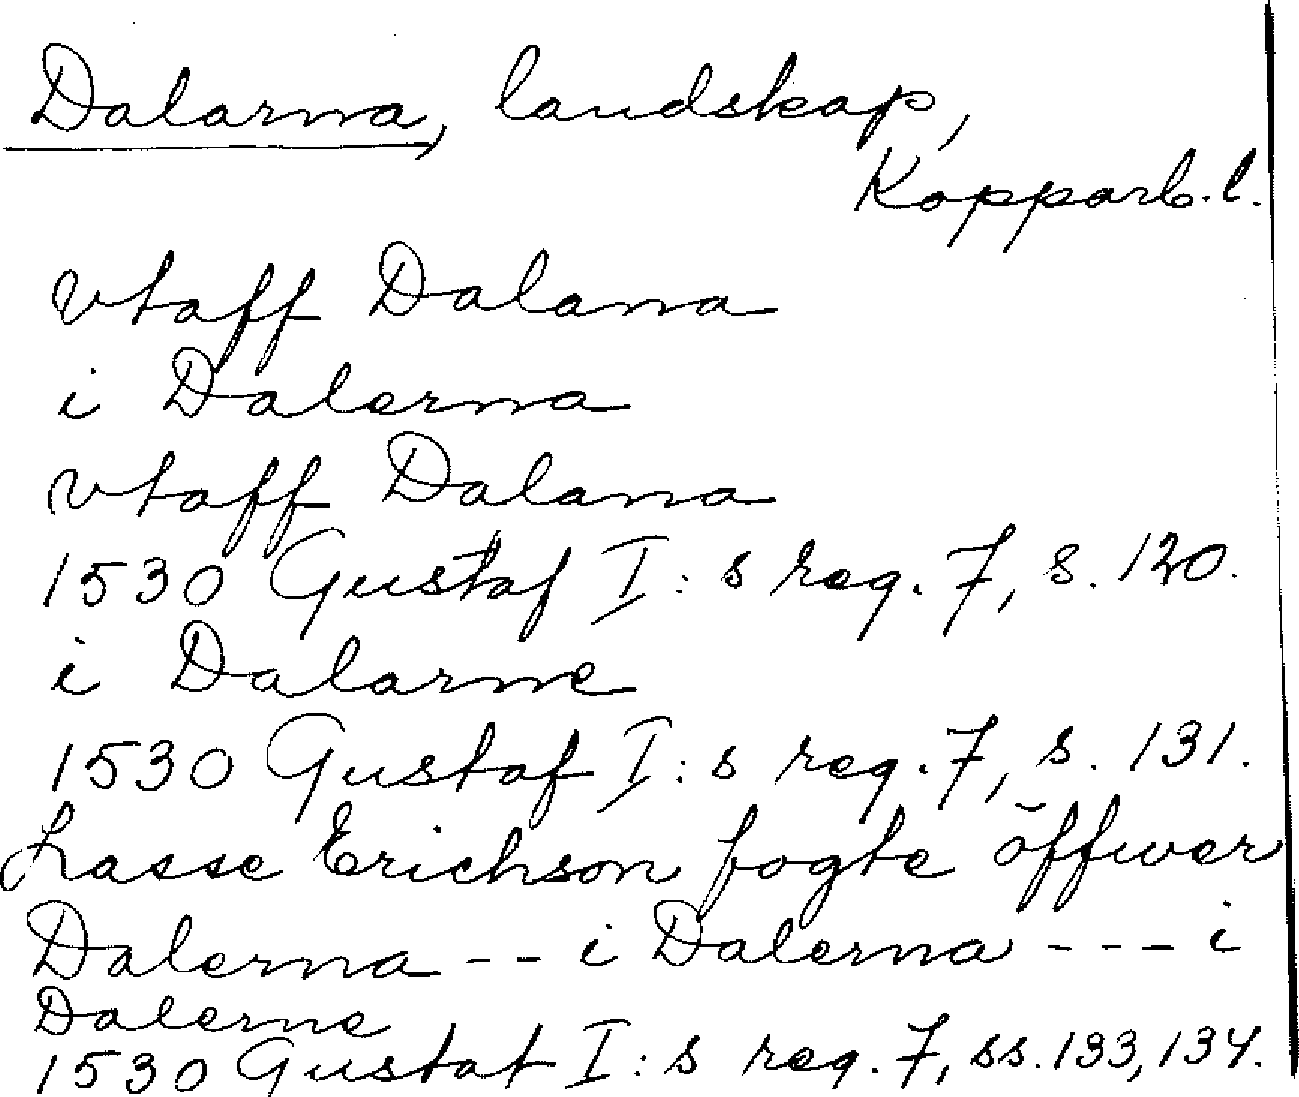 Dalarna, landskap,
Kopparb. l.
vtaff Dalana
i Dalerna
vtaff Dalana
1530 Gustaf I: s reg. 7, s. 120.
i Dalarne
1530 Gustaf I: s reg. 7, s. 131.
Lasse Erichson fogte öffwer
Dalerna -- i Dalerna --- i
Dalerne
1530 Gustaf I: s reg. 7, ss. 133, 134.